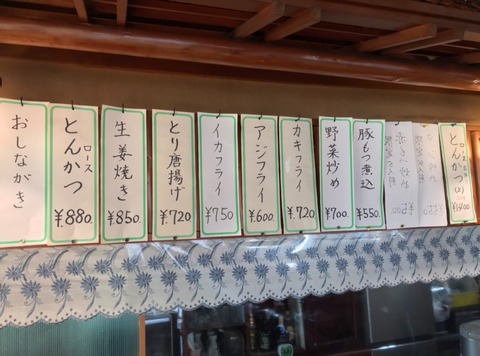 おしながき
ロース
とんかつ
¥.880.
生姜焼き
¥.850
とり唐揚げ
¥.720
イカフライ
¥.750
アジフライ
¥.600.
カキフライ
¥.720
野菜炒め
¥.700.
豚もつ煮込
¥.550.
とんかつ